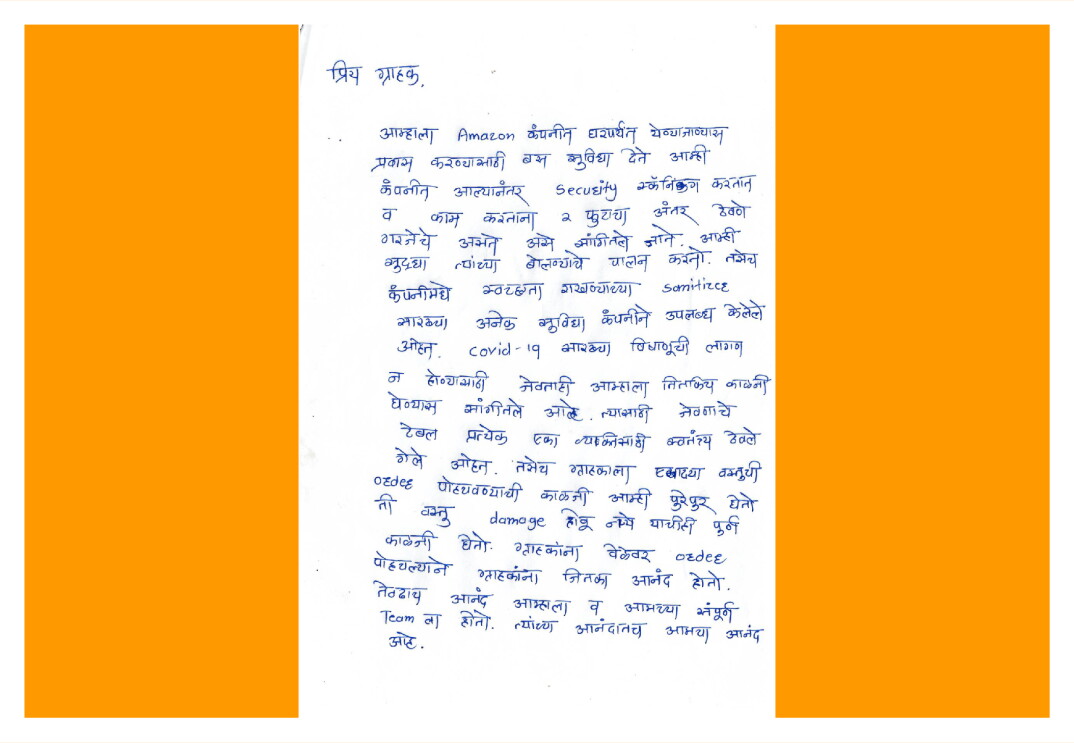 प्रिय ग्राहक,
आम्हाला Amazon कंपनीत घरपर्यंत येण्याजाण्यास
प्रवास करण्यासाठी बस सुविधा देते आम्ही
कंपनीत आल्यानंतर Security स्कॅनिंग करतात
व काम करताना २ फुटाचा अंतर ठेवणे
गरजेचे असते असे सांगितले जाते. आम्ही
सुद्धा त्यांच्या बोलण्याचे पालन करतो. तसेच
कंपनीमधे स्वच्छता राखण्याच्या Sanitizer
सारख्या अनेक सुविधा कंपनीने उपलब्ध केलेले
आहेत. covid-19 सारख्या विषाणूची लागण
न होण्यासाठी जेवताही आम्हाला तितकिच काळजी
घेण्यास सांगीतले आहे. त्यासाठी जेवणाचे
टेबल प्रत्येक एका व्यक्तिसाठी स्वतंत्र्य ठेवले
गेले आहेत. तसेच ग्राहकाला एखाद्या वस्तुची
order पोहचवण्याची काळजी आम्ही पुरेपुर घेतो
ती वस्तु damage होवू नये याचीही पूर्ण
काळजी घेतो. ग्राहकांना वेळेवर order
पोहचल्याने ग्राहकांना जितका आनंद होतो.
तेवढाच आनंद आम्हाला व आमच्या संपूर्ण
Team ला होतो. त्यांच्या आनंदातच आमचा आनंद
आहे.